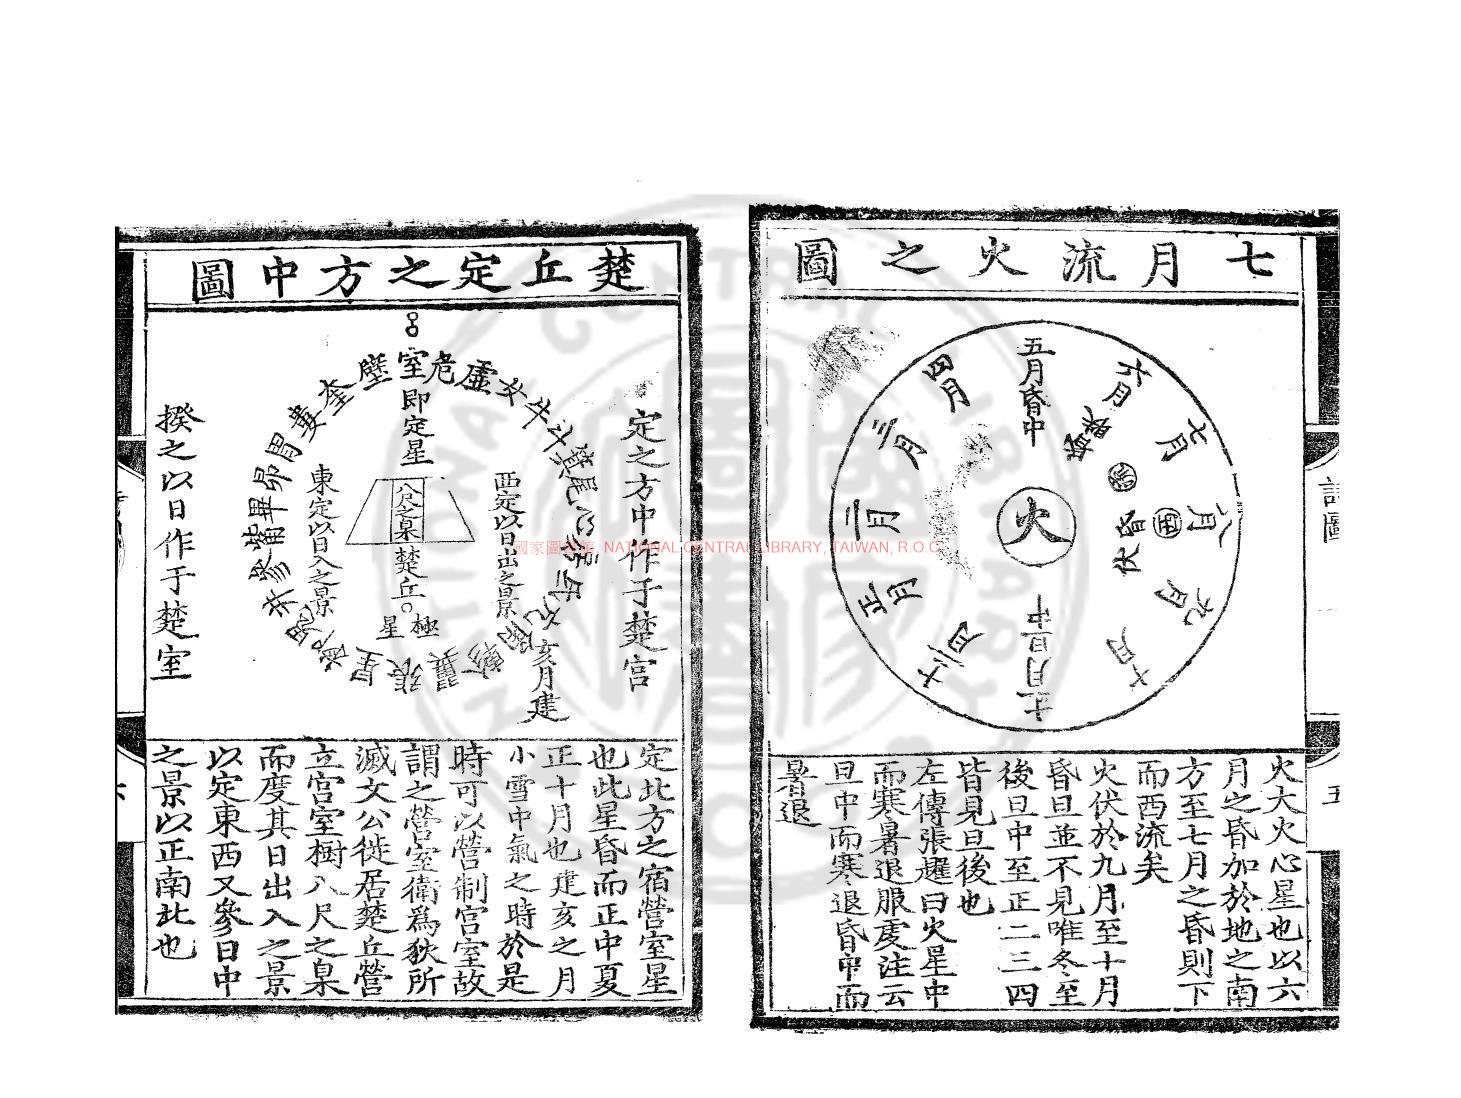 七月流火之圖
五月昏中
六月
七月
八月
九月
十月
十一月旦中
十二月
正月
二月
三月
四月
火
酉
昏
伏
火大火心星也以六
月之昏加於地之南
方至七月之昏則下
而西流矣
火伏於九月至十月
昏旦並不見唯冬至
後旦中至正二三四
皆見旦後也
左傳張趯曰火星中
而寒暑退服虔注云
旦中而寒退昏中而
暑退
詩圖
五
楚丘定之方中圖
定之方中作于楚宮
室即定星
危
虛
女
牛
斗
箕
尾
心
房
氐
亢
角
軫
翼
張
星
柳
鬼
井
參
觜
畢
昴
胃
婁
奎
壁
亥月建
西定以日出之景
八尺之臬
楚丘
極星
東定以日入之景
揆之以日作于楚室
定北方之宿營室星
也此星昏而正中夏
正十月也建亥之月
小雪中氣之時於是
時可以營制宮室故
謂之營室衛為狄所
滅文公徙居楚丘營
立宮室樹八尺之臬
而度其日出入之景
以定東西又參日中
之景以正南北也
六
國家圖書館, NATIONAL CENTRAL LIBRARY, TAIWAN, R.O.C